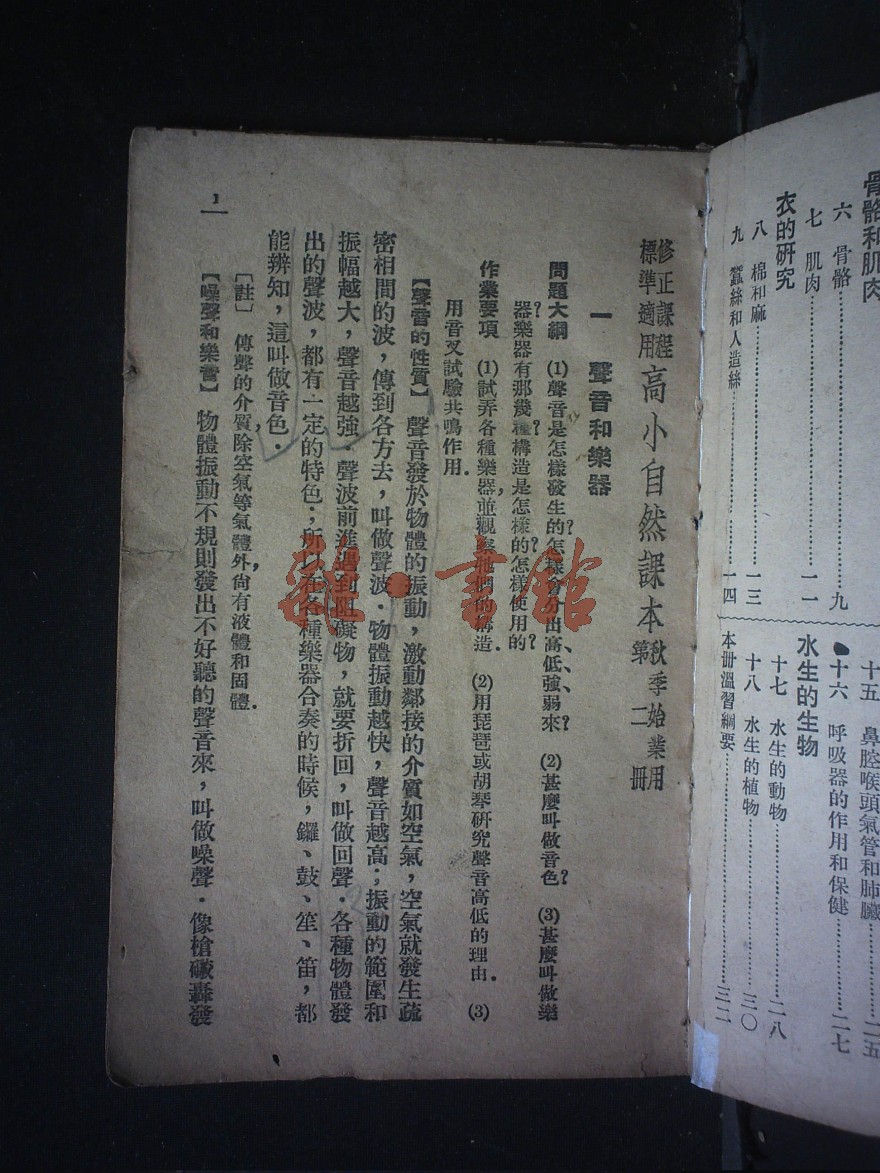 骨骼和肌肉
六 骨骼……………九
七 肌肉……………一一
衣的研究
八 棉和麻……………一三
九 蠶絲和人造絲……………一四
十五 鼻腔喉頭氣管和肺臟……………二五
十六 呼吸器的作用和保健……………二七
水生的生物
十七 水生的動物……………二八
十八 水生的植物……………三〇
本册溫習綱要……………三二
修正課程
標準適用
高小自然課本
秋季始業用
第二册
一 聲音和樂器
問題大綱 (1)聲音是怎樣發生的?怎樣會分出高、低、強、弱來? (2)甚麼叫做音色? (3)甚麼叫做樂
器?樂器有那幾種?構造是怎樣的?怎樣使用的?
作業要項 (1)試弄各種樂器,並觀察牠們的構造. (2)用琵琶或胡琴研究聲音高低的理由. (3)
用音叉試驗共鳴作用.
【聲音的性質】 聲音發於物體的振動,激動鄰接的介質如空氣,空氣就發生疏
密相間的波,傳到各方去,叫做聲波.物體振動越快,聲音越高;振動的範圍和
振幅越大,聲音越強.聲波前進遇到阻礙物,就要折回,叫做回聲.各種物體發
出的聲波,都有一定的特色;所以在各種樂器合奏的時候,鑼、鼓、笙、笛,都
能辨知,這叫做音色.
[註] 傳聲的介質除空氣等氣體外,尚有液體和固體.
【噪聲和樂音】 物體振動不規則發出不好聽的聲音來,叫做噪聲.像槍礮轟發
1
雅·書館